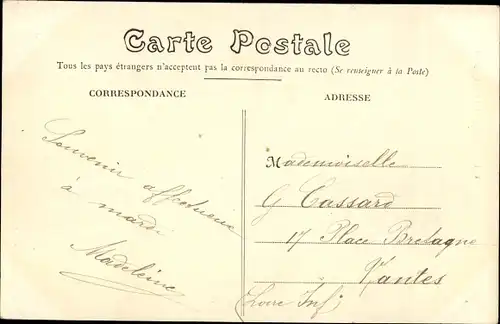 Carte Postale
Tous les pays étrangers n'acceptent pas la correspondance au recto (Se renseigner à la Poste)
CORRESPONDANCE
Souvenir affectueux
à mardi
Madeleine
ADRESSE
Mademoiselle
G Cassard
17 Place Bretagne
Nantes
(Loire Inf)